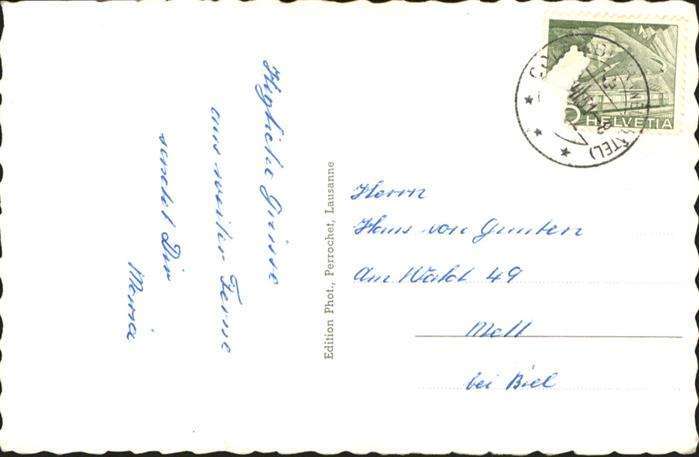 Grüsse
aus weiter Ferne
sendet Dir
Maria
Edition Phot., Perrochet, Lausanne
HELVETIA
Herrn
Hans von Gunten
Am Wald 49
bei Biel